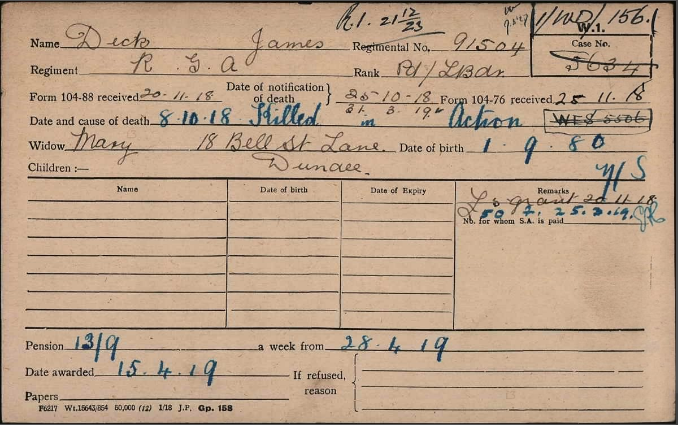 R.1. 21 12/23
1/WD/ 156.
W.1.
Name Deck James Regimental No. 91504
Case No.
5634
Regiment R G A Rank Pt/LBdr.
Form 104-88 received 20-11-18 Date of notification of death } 25-10-18 Form 104-76 received 25 11. 18
Date and cause of death 8-10-18 Killed in Action
Widow Mary 18 Bell St Lane. Date of birth 1. 9. 80
Dundee.
Children :— N/S
Name Date of birth Date of Expiry Remarks
£5 grant 20-11-18
No. for whom S.A. is paid
Pension 13/9 a week from 28.4.19
Date awarded 15.4.19 If refused, reason
Papers
P6217 Wt.16643/854 60,000 (12) 1/18 J.P. Gp. 158